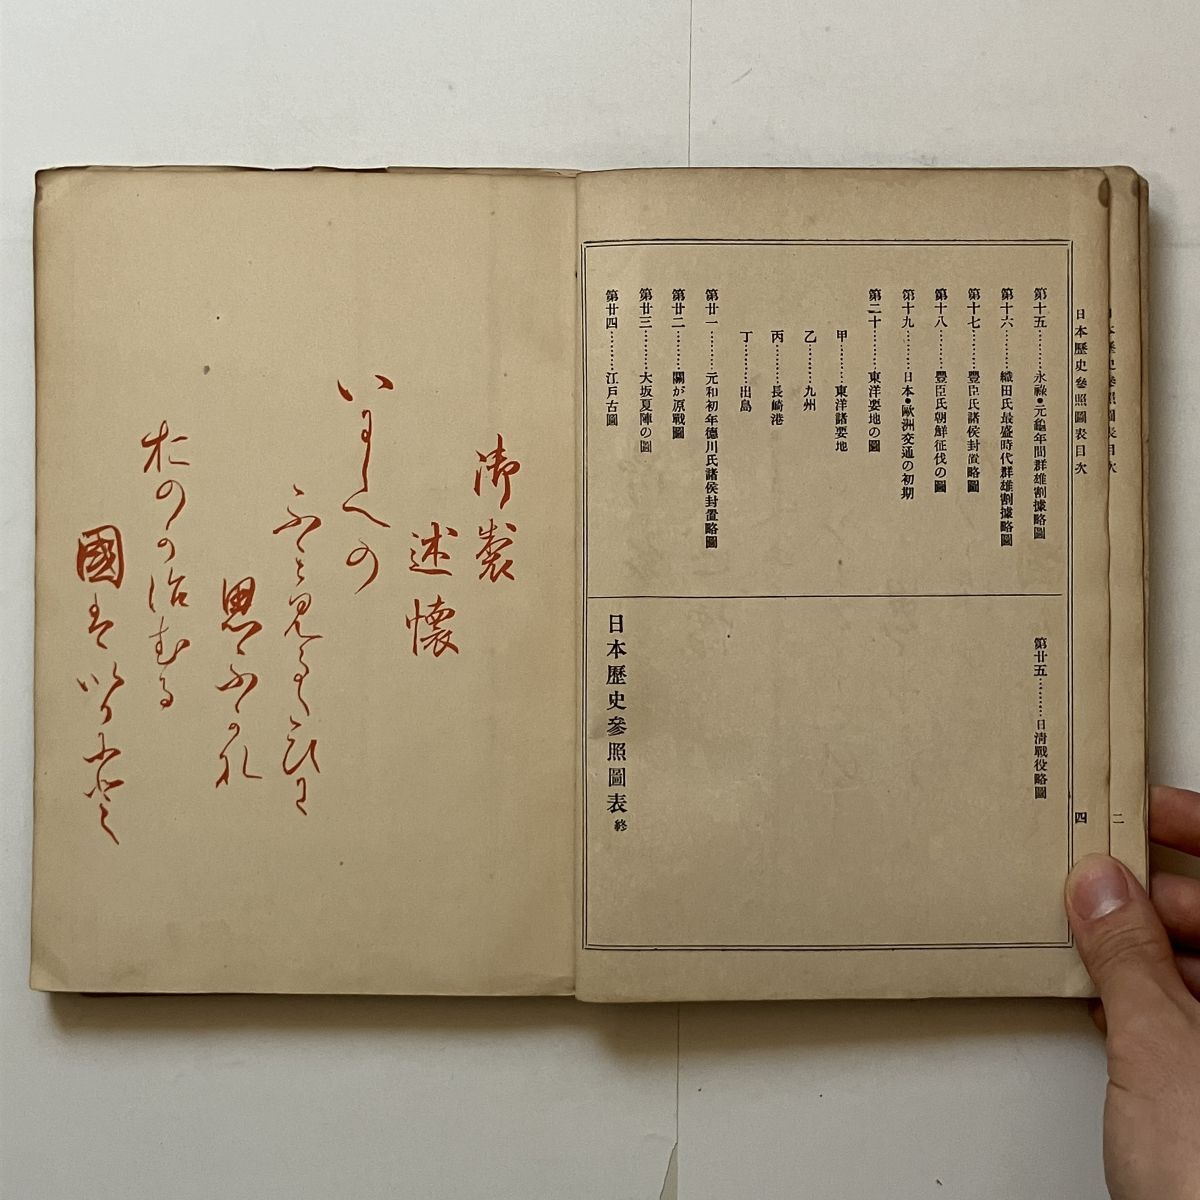 日本歷史參照圖表目次
二
日本歷史參照圖表目次
四
第十五………永祿・元龜年間群雄割據略圖
第十六………織田氏最盛時代群雄割據略圖
第十七………豐臣氏諸侯封置略圖
第十八………豐臣氏朝鮮征伐の圖
第十九………日本・歐洲交通の初期
第二十………東洋要地の圖
甲………東洋諸要地
乙………九州
丙………長崎港
丁………出島
第廿一………元和初年德川氏諸侯封置略圖
第廿二………關が原戰圖
第廿三………大坂夏陣の圖
第廿四………江戸古圖
第廿五………日淸戰役略圖
日本歷史參照圖表 終
御製
述懷
いにしへの
ふミ見るたひに
思ふかな
おのか治むる
國はいかにと